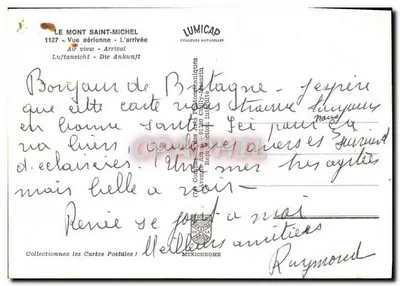 LE MONT SAINT-MICHEL
1127 - Vue aérienne - L'arrivée
Air view - Arrival
Luftansicht - Die Ankunft
LUMICAP
Bonjour de Bretagne - J'espère
que cette carte vous trouve toujours
en bonne santé - Ici pour nous ça
va bien, quelques averses suivant
d'éclaircies. Une mer très agitée
mais belle a voir -
Renée se joint a moi
Meilleurs amitiés
Raymond
Collectionnez les Cartes Postales !
MEXICHROME